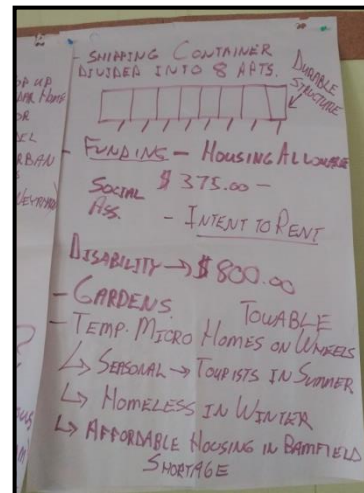 - SHIPPING CONTAINER
DIVIDED INTO 8 APTS.
DURABLE
STRUCTURE
- FUNDING - HOUSING ALLOWABLE
SOCIAL $ 375.00 -
ASS.
- INTENT TO RENT
DISABILITY → $800.00
- GARDENS. TOWABLE
- TEMP. MICRO HOMES ON WHEELS
↳ SEASONAL → TOURISTS IN SUMMER
↳ HOMELESS IN WINTER
↳ AFFORDABLE HOUSING IN BAMFIELD
SHORTAGE
UP
HOME
OR
URBAN